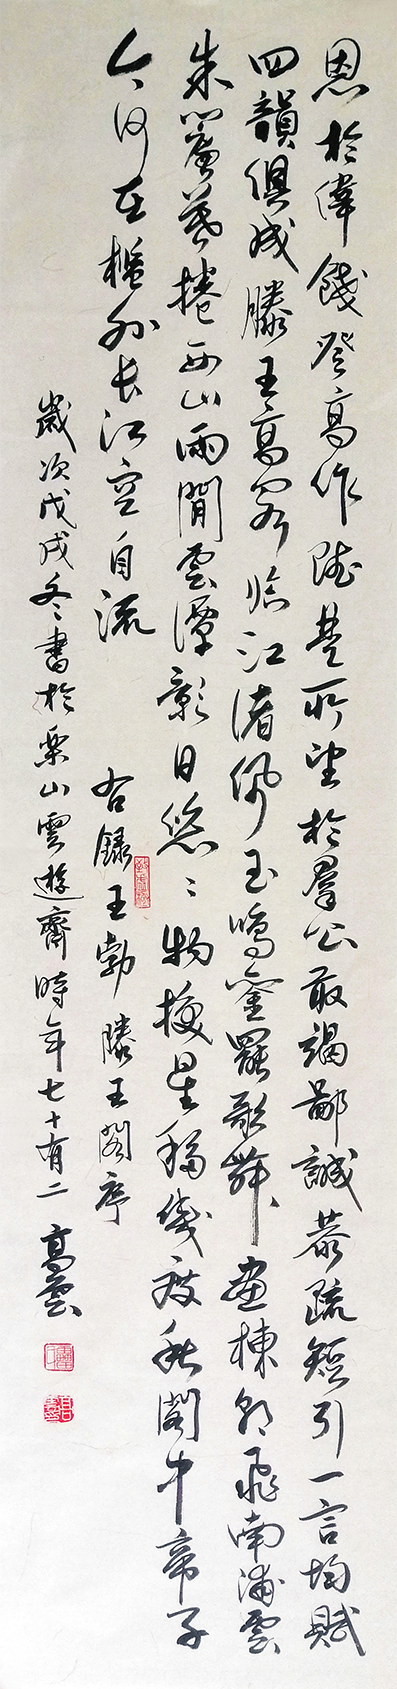 恩於偉餞登高作賦是所望於羣公敢竭鄙誠恭疏短引一言均賦
四韻俱成滕王高閣臨江渚佩玉鳴鑾罷歌舞畫棟朝飛南浦雲
朱簾暮捲西山雨閒雲潭影日悠〻物換星移幾度秋閣中帝子
今何在檻外長江空自流
右錄王勃滕王閣序
歲次戊戌冬書於樂山雲遊齋時年七十有二 高雲